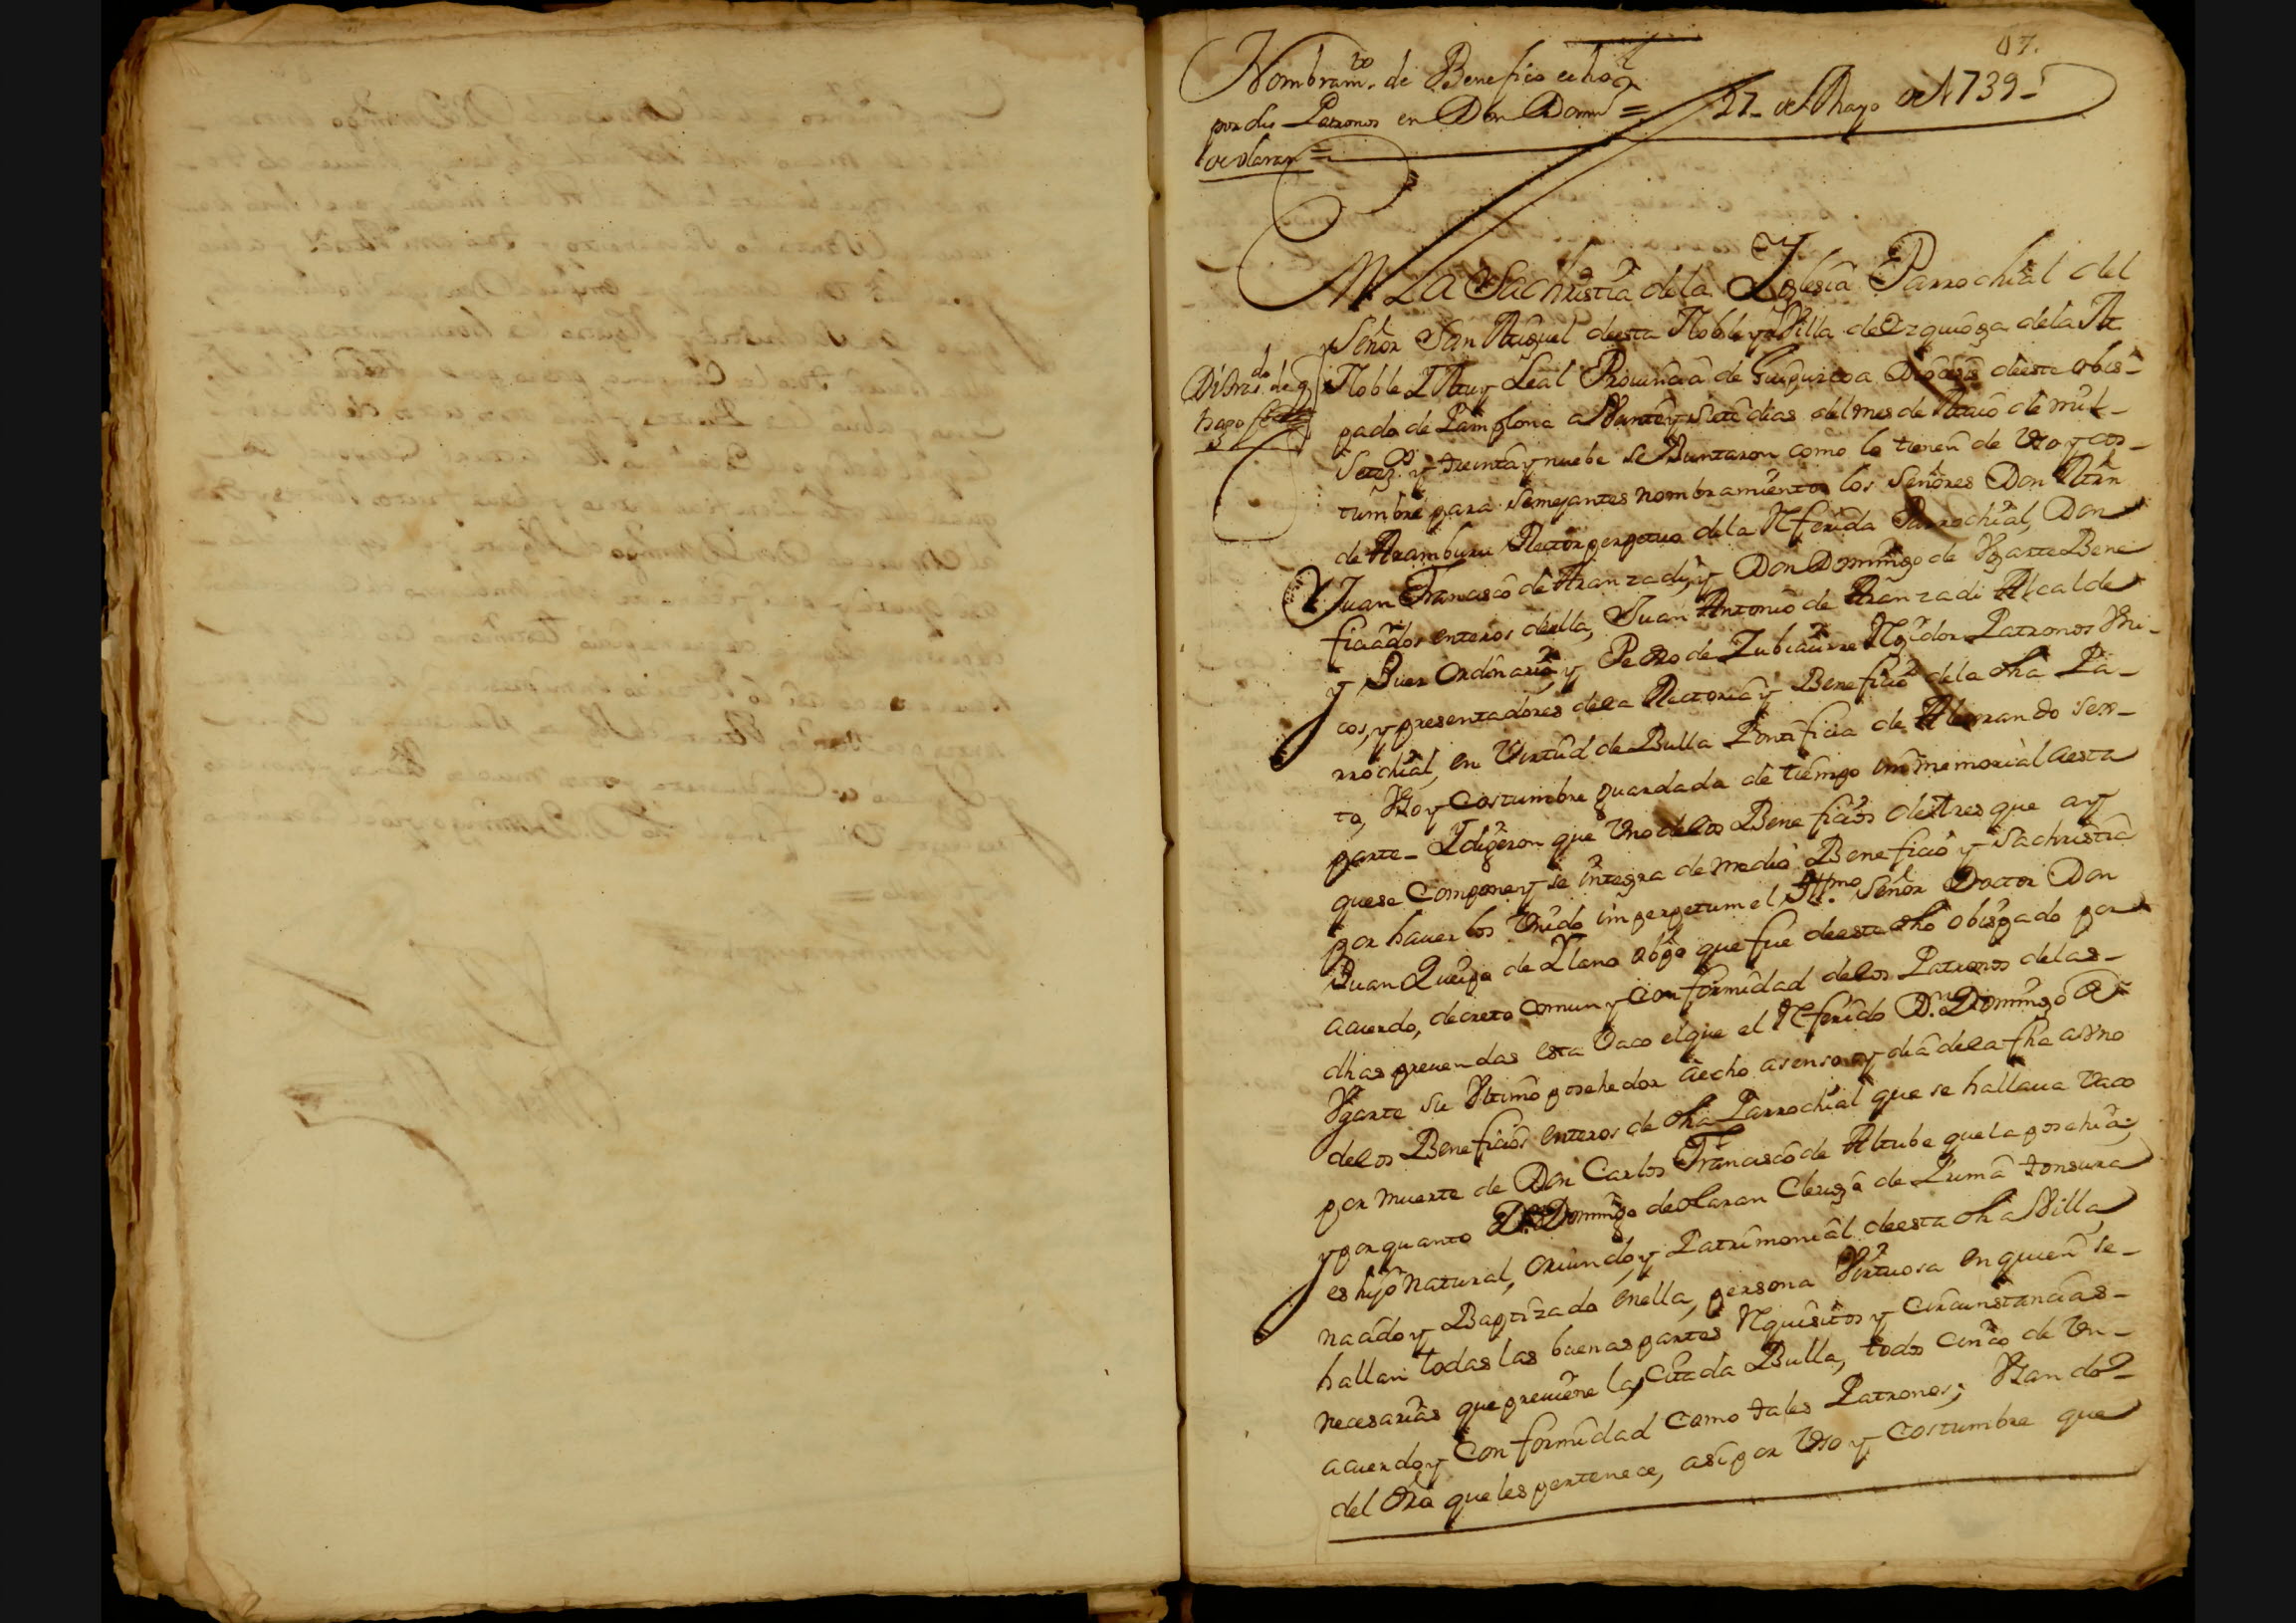 87.
Nombram.to de Beneficio echo
por sus Patronos en Don Dom.o = 27- de Mayo de 1739-
de olaran =
En La Sachristia de la Iglesia Parrochial del
Señor San Miguel de esta Noble Villa de Ezquioga de la M.
Noble I Muy Leal Prouincia de Guipuzcoa Diocesis de este obis-
pado de Pamplona a Veinte y siete dias del mes de Maio de mill-
Setez.os y treinta y nuebe se Juntaron como lo tienen de Vso y cos-
tumbre para semejantes nombramientos los Señores Don Mrn
de Aramburu Rector perpetuo de la Referida Parrochial, Don
Juan Francisco de Aranzadi, y Don Domingo de Vgarte Bene
ficiados enteros de ella, Juan Antonio de Aranzadi Alcalde
y Juez Ordinario, y Pedro de Zubiaurre Rexidor Patronos Vni-
cos, y presentadores de la Rectoria y Beneficios de la dha Pa-
rrochial, en Virtud de Bulla Pontificia de Alexandro sex-
to, Vso y Costumbre guardada de tiempo immemorial a esta
parte- I dixeron que Vno de los Beneficios de tres que ay
que se Compone y se integra de medio Beneficio y Sachristia
por hauerlos Vnido imperpetum el Ill.mo Señor Doctor Don
Juan Queipo de Llano obpo que fue de este dho obispado por
acuerdo, decreto comun y Conformidad de los Patronos de las-
dhas preuendas esta Vaco el que el Referido D.n Domingo de
Vgarte su Vltimo posehedor a echo asenso oy dia de la fha a Vno
de los Beneficios enteros de dha Parrochial que se hallaua Vaco
por muerte de Don Carlos Francisco de Altube que la posehia;
y por quanto D.n Domingo de olaran Clerigo de Prima tonsura
es hijo Natural, oriundo, y Patrimonial de esta dha Villa,
nacido y Baptizado en ella, persona Virtuosa en quien se-
hallan todas las buenas partes Requisitos y Circunstancias-
necesarias que preuiene la Citada Bulla, todos cinco de Vn-
acuerdo y Conformidad como tales Patronos; Vsando-
del dro que les pertenece, asi por Vso y Costumbre que